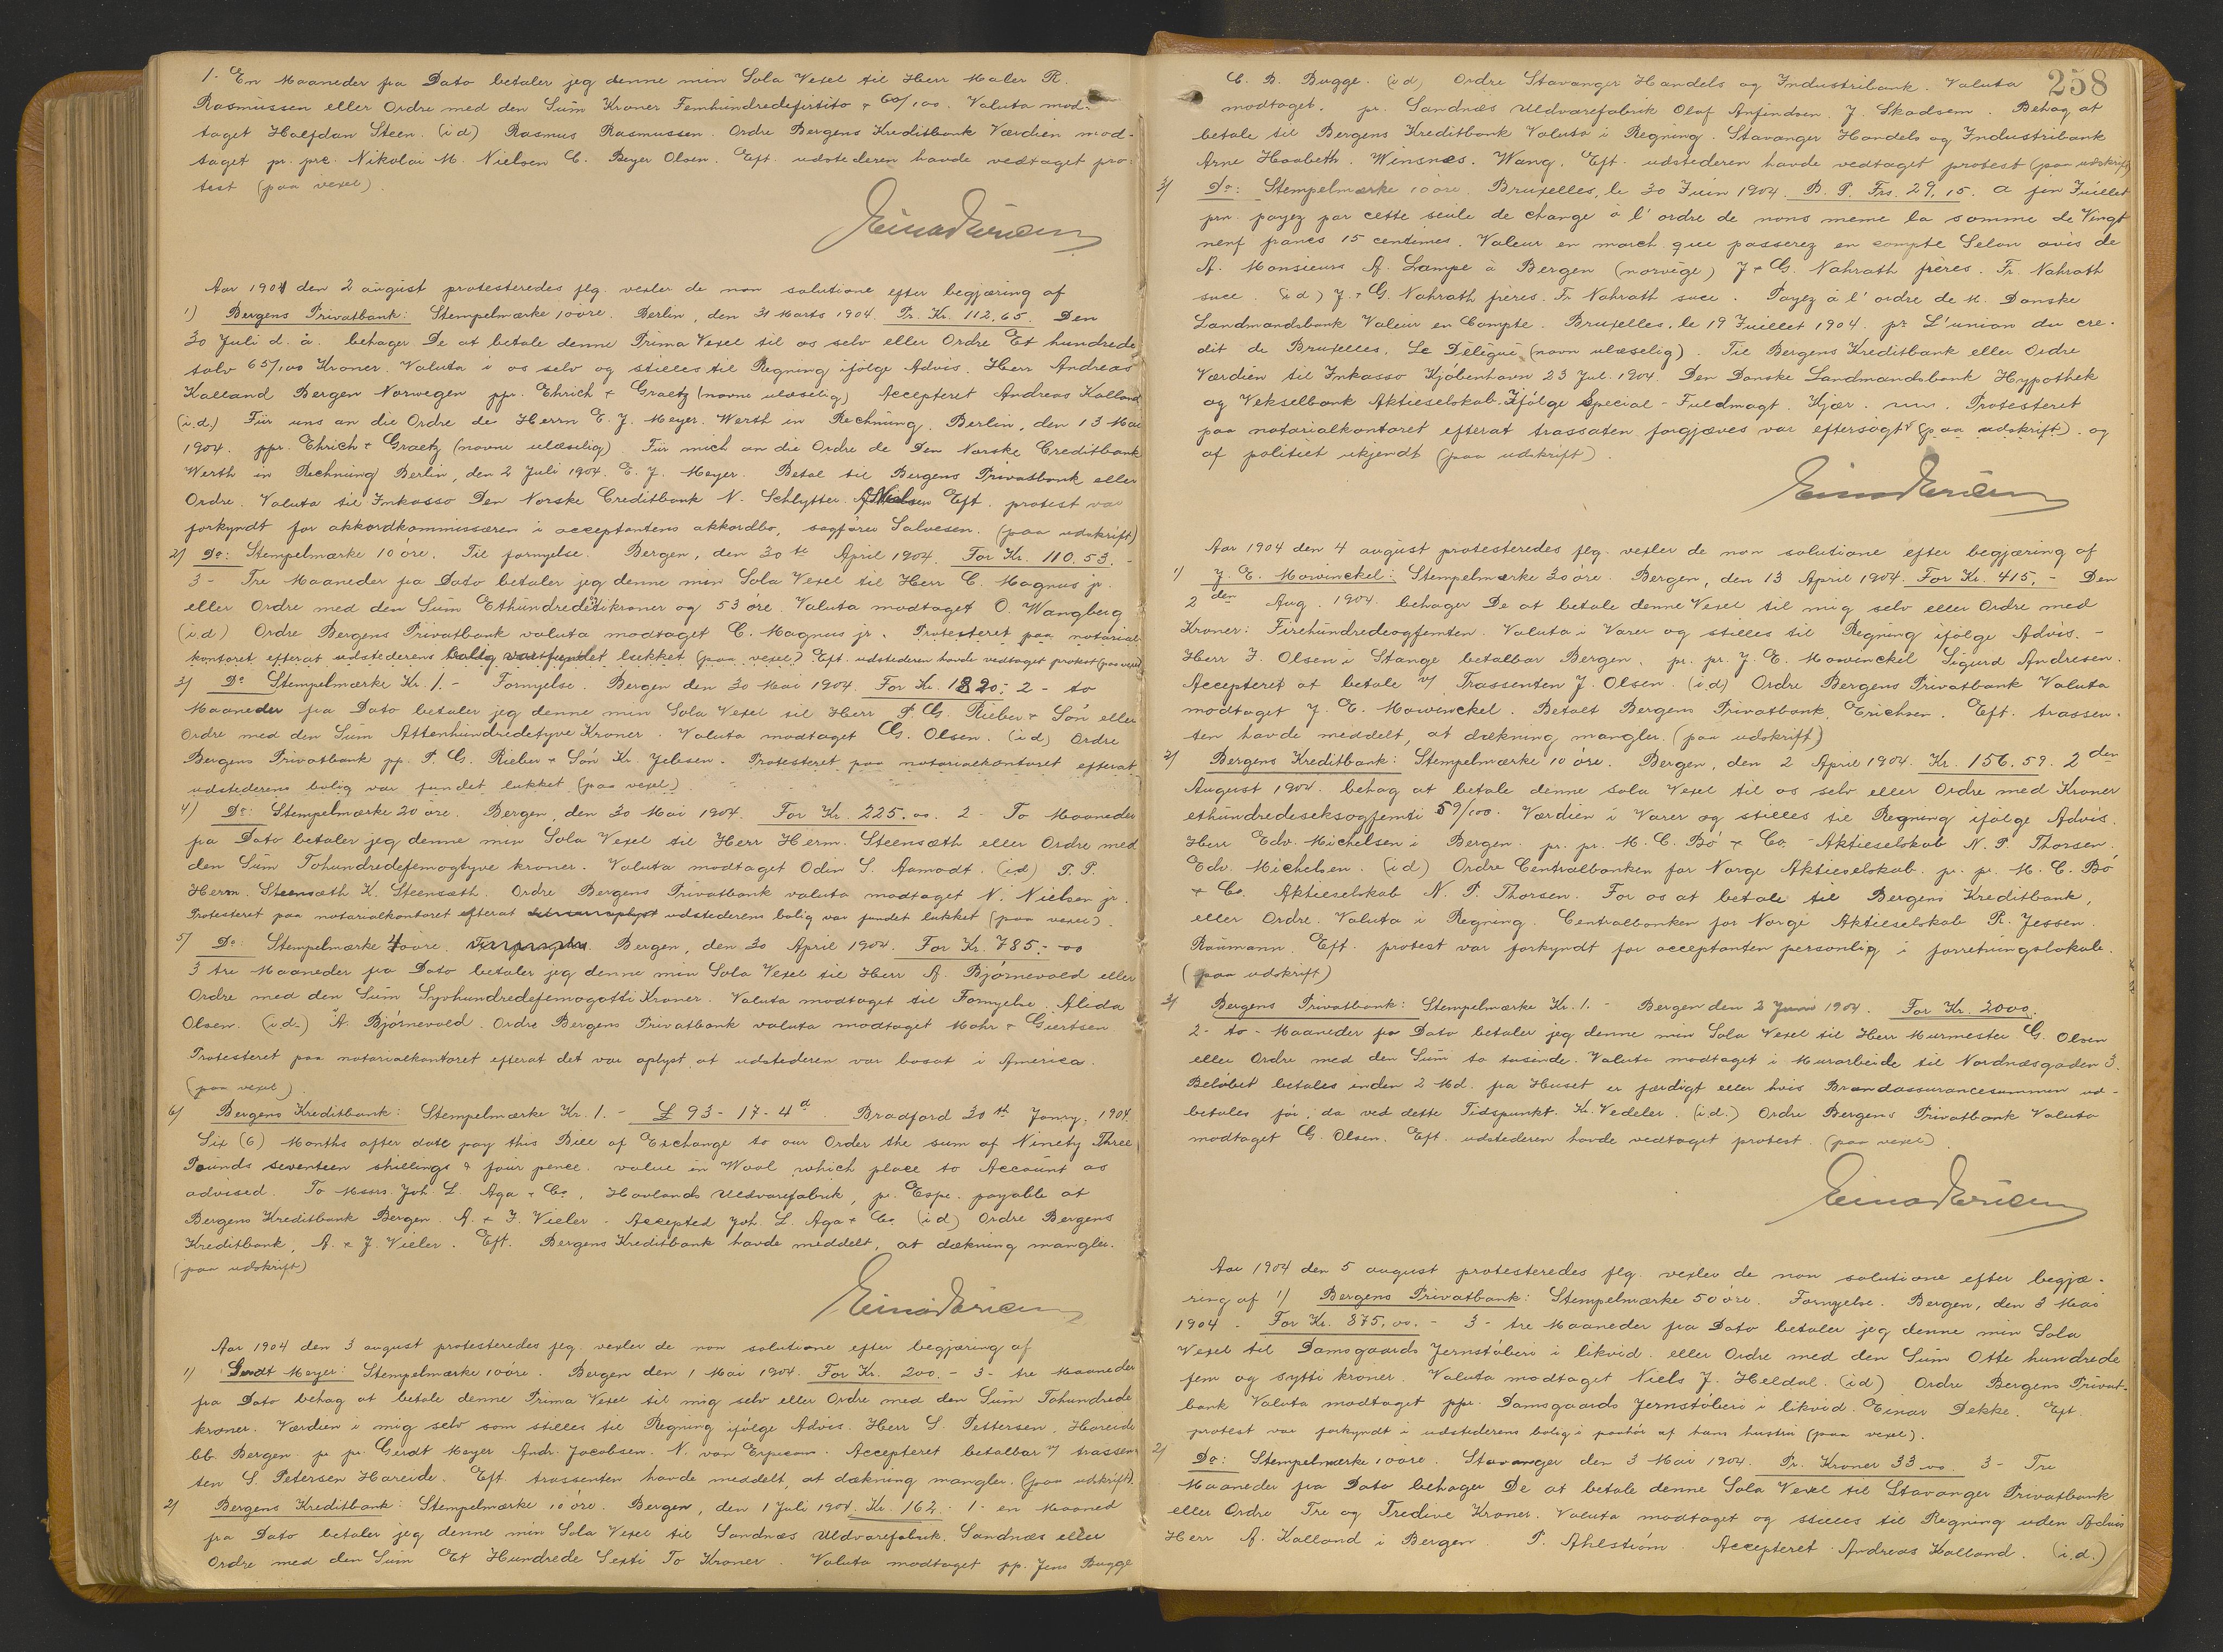 1. En Maaneder fra Dato betaler jeg denne min Sola Vexel til Herr Maler R.
Rasmussen eller Ordre med den Sum Kroner Femhundredefirtito & 60/100. Valuta mod-
taget Halfdan Steen. (i d) Rasmus Rasmussen. Ordre Bergens Kreditbank Værdien mod-
taget pr. prc. Nikolai M. Nielsen C. Beyer Olsen. Eft. udstederen havde vedtaget pro-
test (paa vexel).
Aar 1904 den 2 august protesteredes flg. vexler de non solutione efter begjæring af
1) Bergens Privatbank: Stempelmærke 10 øre. Berlin, den 31 Marts 1904. Pr. Kr. 112,65. Den
30 Juli d. å. behager De at betale denne Prima Vexel til os selv eller Ordre Et hundrede
tolv 65/100 Kroner. Valuta i os selv og stilles til Regning ifølge Advis. Herr Andreas
Kalland Bergen Norwegen ppr. Ehrich & Graetz (navne ulæselig) Accepteret Andreas Kalland
(i.d.) Für uns an die Ordre de Herrn E. J. Meyer. Werth in Rechnung. Berlin, den 13 Mai
1904. ppr. Ehrich & Graetz (navne ulæselig) Für mich an die Ordre de Den Norske Creditbank
Werth in Rechnung Berlin, den 2 Juli 1904. E. J. Meyer. Betal til Bergens Privatbank eller
Ordre. Valuta til Inkasso Den Norske Creditbank N. Schlytter. Eft. protest var
forkyndt for akkordkommissæren i acceptantens akkordbo, sagfører Salvesen. (paa udskrift)
2) Do: Stempelmærke 10 øre. Til fornyelse. Bergen, den 30te April 1904. For Kr. 110.53.-
3 - Tre Maaneder fra Dato betaler jeg denne min Sola Vexel til Herr C. Magnus jr.
eller Ordre med den Sum Ethundredetikroner og 53 øre. Valuta modtaget O. Wangberg
(i.d) Ordre Bergens Privatbank valuta modtaget C. Magnus jr. Protesteret paa notarial-
kontoret efterat udstederens bolig var fundet lukket (paa vexel). Eft. udstederen havde vedtaget protest (paa vexel)
3) Do Stempelmærke Kr. 1.- Fornyelse. Bergen den 30 Mai 1904. For Kr. 1820.- 2 - to
Maaneder fra Dato betaler jeg denne min Sola Vexel til Herr P. G. Rieber & Søn eller
Ordre med den Sum Attenhundredetyve Kroner. Valuta modtaget G. Olsen. (i d) Ordre
Bergens Privatbank pp. P. G. Rieber & Søn Kr. Jebsen. Protesteret paa notarialkontoret efterat
udstederens bolig var fundet lukket (paa vexel)
4) Do: Stempelmærke 20 øre. Bergen, den 30 Mai 1904. For Kr. 225.00. 2 - To Maaneder
fra Dato betaler jeg denne min Sola Vexel til Herr Herm. Steensæth eller Ordre med
den Sum Tohundredefemogtyve kroner. Valuta modtaget Odin S. Aamodt. (i d) P. P.
Herm. Steensæth K. Steensæth. Ordre Bergens Privatbank valuta modtaget N. Nielsen jr.
Protesteret paa notarialkontoret efterat udstederens bolig var fundet lukket (paa vexel).
5) Do: Stempelmærke 40 øre. Bergen, den 30 April 1904. For Kr. 785.- 00
3 tre Maaneder fra Dato betaler jeg denne min Sola Vexel til Herr A. Bjørnevold eller
Ordre med den Sum Syvhundredefemogotti Kroner. Valuta modtaget til Fornyelse. Alida
Olsen. (i.d.) A. Bjørnevold. Ordre Bergens Privatbank valuta modtaget Mohr & Geertsen
Protesteret paa notarialkontoret efterat det var oplyst at udstederen var bosat i America.
(paa vexel)
6) Bergens Kreditbank: Stempelmærke Kr. 1.- £ 93-17-4d Bradford 30th Janry. 1904.
Six (6) Months after date pay this Bill of Exchange to our Order the sum of Ninety Three
Pounds seventeen shillings & four pence. value in Wool which place to Account as
advised. To Messrs. Joh. L. Aga & Co, Hovlands Uldvarefabrik, pr. Espe. payable at
Bergens Kreditbank Bergen. A. & J. Vieler. Accepted Joh. L. Aga & Co. (i d) Ordre Bergens
Kreditbank, A. & J. Vieler. Eft. Bergens Kreditbank havde meddelt, at dækning mangler.
(paa udskrift)
Aar 1904 den 3 august protesteredes flg. vexler de non solutione efter begjæring af
1) Gerdt Meyer: Stempelmærke 10 øre. Bergen den 1 Mai 1904. For Kr. 200.- 3 - tre Maaneder
fra Dato behag at betale denne Prima Vexel til mig selv eller Ordre med den Sum Tohundrede
kroner. Værdien i mig selv som stilles til Regning ifølge Advis. Herr S. Pettersen, Hareide
bb. Bergen. pr. pr. Gerdt Meyer Andr. Jacobsen. N. von Erpecom. Accepteret betalbar v/ trassen-
ten S. Petersen Hareide. Eft. trassenten havde meddelt, at dækning mangler. (paa udskrift).
2) Bergens Kreditbank: Stempelmærke 10 øre. Bergen, den 1 Juli 1904. Kr. 162.- 1 - en Maaned
fra Dato betaler jeg denne min Sola Vexel til Sandnæs Uldvarefabrik. Sandnæs eller
Ordre med den Sum Et Hundrede Sexti To Kroner. Valuta modtaget pp. Jens Bugge
258
C. B. Bugge. (i d) Ordre Stavanger Handels og Industribank. Valuta
modtaget. pr. Sandnæs Uldvarefabrik Olaf Anfindsen. J. Skadsem. Behag at
betale til Bergens Kreditbank Valuta i Regning. Stavanger Handels og Industribank
Arne Haabeth. Winsnes. Wang. Eft. udstederen havde vedtaget protest (paa udskrift)
3) Do: Stempelmærke 10 øre. Bruxelles, le 30 Juin 1904. B. P. Frs. 29,15. A fin Juillet
prn. payez par cette seule de change à l'ordre de nous meme la somme de Vingt
neuf francs 15 centimes. Valeur en march. que passerez en compte Selon avis de
A. Monsieurs A. Lampe à Bergen (norvège) J & G. Nahrath frères. Fr. Nahrath
succ. (i d) J. & G. Nahrath frères. Fr. Nahrath succ. Payez à l'ordre de M. Danske
Landmandsbank Valeur en Compte. Bruxelles, le 19 Juillet 1904. pr. L'union du cre-
dit de Bruxelles. Le Délégué (navn ulæselig). Til Bergens Kreditbank eller Ordre
Værdien til Inkasso Kjøbenhavn 23 Jul. 1904. Den Danske Landmandsbank Hypothek
og Vekselbank Aktieselskab. Ifølge Special-Fuldmagt. Kjær. Protesteret
paa notarialkontoret efterat trassaten forgjæves var eftersøgt (paa udskrift). og
af politiet ukjendt (paa udskrift).
Aar 1904 den 4 august protesteredes flg. vexler de non solutione efter begjæring af
1) J. E. Mowinckel: Stempelmerke 30 øre. Bergen, den 13 April 1904. For Kr. 415,- Den
2den Aug. 1904. behager De at betale denne Vexel til mig selv eller Ordre med
Kroner: Firehundredeogfemten. Valuta i Varer og stilles til Regning ifølge Advis. -
Herr J. Olsen i Stange betalbar Bergen. pr. pr. J. E. Mowinckel Sigurd Andresen.
Accepteret at betale v/ Trassenten J. Olsen. (i d) Ordre Bergens Privatbank Valuta
modtaget J. E. Mowinckel. Betalt Bergens Privatbank, Erichsen. Eft. trassen-
ten havde meddelt, at dækning mangler. (paa udskrift)
2) Bergens Kreditbank: Stempelmærke 10 øre. Bergen, den 2 April 1904. Kr. 156.59. 2den
August 1904. behag at betale denne sola Vexel til os selv eller Ordre med Kroner
ethundredeseksogfemti 59/100. Værdien i Varer og stilles til Regning ifølge Advis.
Herr Edv. Michelsen i Bergen. pr. pr. M. C. Bø & Co, Aktieselskab N. P. Thorsen.
Edv. Michelsen. (i d) Ordre Centralbanken for Norge Aktieselskab. pr. pr. M. C. Bø
& Co. Aktieselskab N. P. Thorsen. For os at betale til Bergens Kreditbank,
eller Ordre. Valuta i Regning. Centralbanken for Norge Aktieselskab R. Jessen.
Baumann. Eft. protest var forkyndt for acceptanten personlig i forretningslokale.
(paa udskrift)
3) Bergens Privatbank: Stempelmærke Kr. 1.- Bergen den 2 Juni 1904. For Kr. 2000.
2 - to - Maaneder fra Dato betaler jeg denne min Sola Vexel til Herr Murmester G. Olsen
eller Ordre med den Sum to tusinde. Valuta modtaget i Murarbeide til Nordnæsgaden 3.
Beløbet betales inden 2 Md. fra Huset er færdigt eller hvis Brandassurancesummen ud-
betales før, da ved dette Tidspunkt. Kr. Vedeler. (i d.) Ordre Bergens Privatbank Valuta
modtaget G. Olsen. Eft. udstederen havde vedtaget protest. (paa vexel).
Aar 1904 den 5 august protesteredes flg. vexler de non solutione efter begjæ-
ring af 1) Bergens Privatbank: Stempelmærke 50 øre. Fornyelse. Bergen, den 3 Mai
1904. For Kr. 875,00.- 3 - tre Maaneder fra Dato betaler jeg denne min Sola
Vexel til Damsgaards Jernstøberi i likvid. eller Ordre med den Sum Otte hundrede
fem og sytti kroner. Valuta modtaget Niels J. Heldal. (i d) Ordre Bergens Privat-
bank Valuta modtaget ppr. Damsgaards Jernstøberi i likvid. Einar Dekke. Eft.
protest var forkyndt i udstederens bolig i paahør af hans hustru (paa vexel).
2) Do: Stempelmerke 10 øre. Stavanger den 3 Mai 1904. Pr. Kroner 33 00. 3 - Tre
Maaneder fra Dato behager De at betale denne Sola Vexel til Stavanger Privatbank
eller Ordre Tre og Tredive Kroner. Valuta modtaget og stilles til Regning uden Advis
Herr A. Kalland i Bergen. P. Ahlstrøm. Accepteret Andreas Kalland. (i.d.)